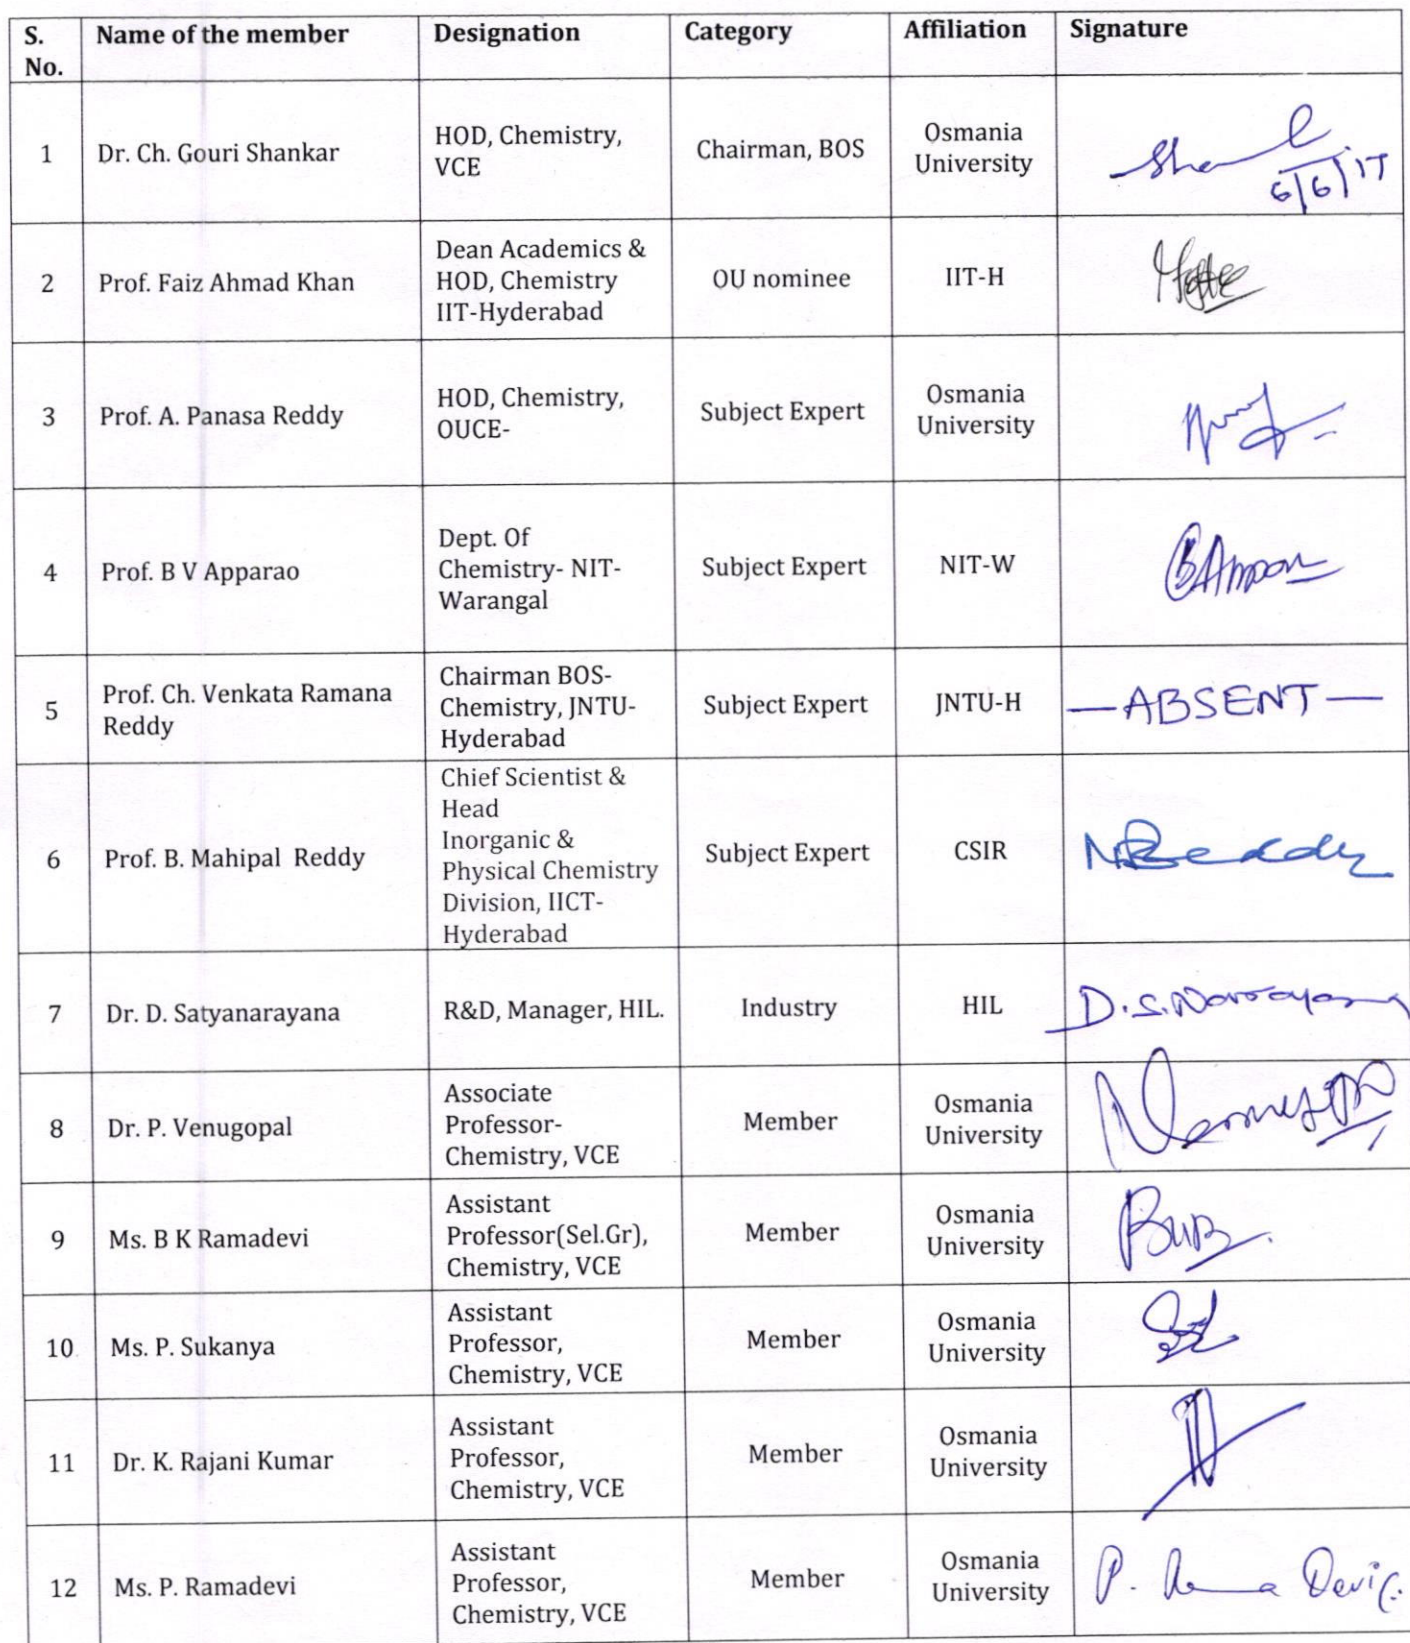 S. No. Name of the member Designation Category Affiliation Signature
1 Dr. Ch. Gouri Shankar HOD, Chemistry, VCE Chairman, BOS Osmania University 6/6/17
2 Prof. Faiz Ahmad Khan Dean Academics & HOD, Chemistry IIT-Hyderabad OU nominee IIT-H
3 Prof. A. Panasa Reddy HOD, Chemistry, OUCE- Subject Expert Osmania University
4 Prof. B V Apparao Dept. Of Chemistry- NIT-Warangal Subject Expert NIT-W
5 Prof. Ch. Venkata Ramana Reddy Chairman BOS-Chemistry, JNTU-Hyderabad Subject Expert JNTU-H —ABSENT—
6 Prof. B. Mahipal Reddy Chief Scientist & Head Inorganic & Physical Chemistry Division, IICT-Hyderabad Subject Expert CSIR
7 Dr. D. Satyanarayana R&D, Manager, HIL. Industry HIL
8 Dr. P. Venugopal Associate Professor-Chemistry, VCE Member Osmania University
9 Ms. B K Ramadevi Assistant Professor(Sel.Gr), Chemistry, VCE Member Osmania University
10 Ms. P. Sukanya Assistant Professor, Chemistry, VCE Member Osmania University
11 Dr. K. Rajani Kumar Assistant Professor, Chemistry, VCE Member Osmania University
12 Ms. P. Ramadevi Assistant Professor, Chemistry, VCE Member Osmania University